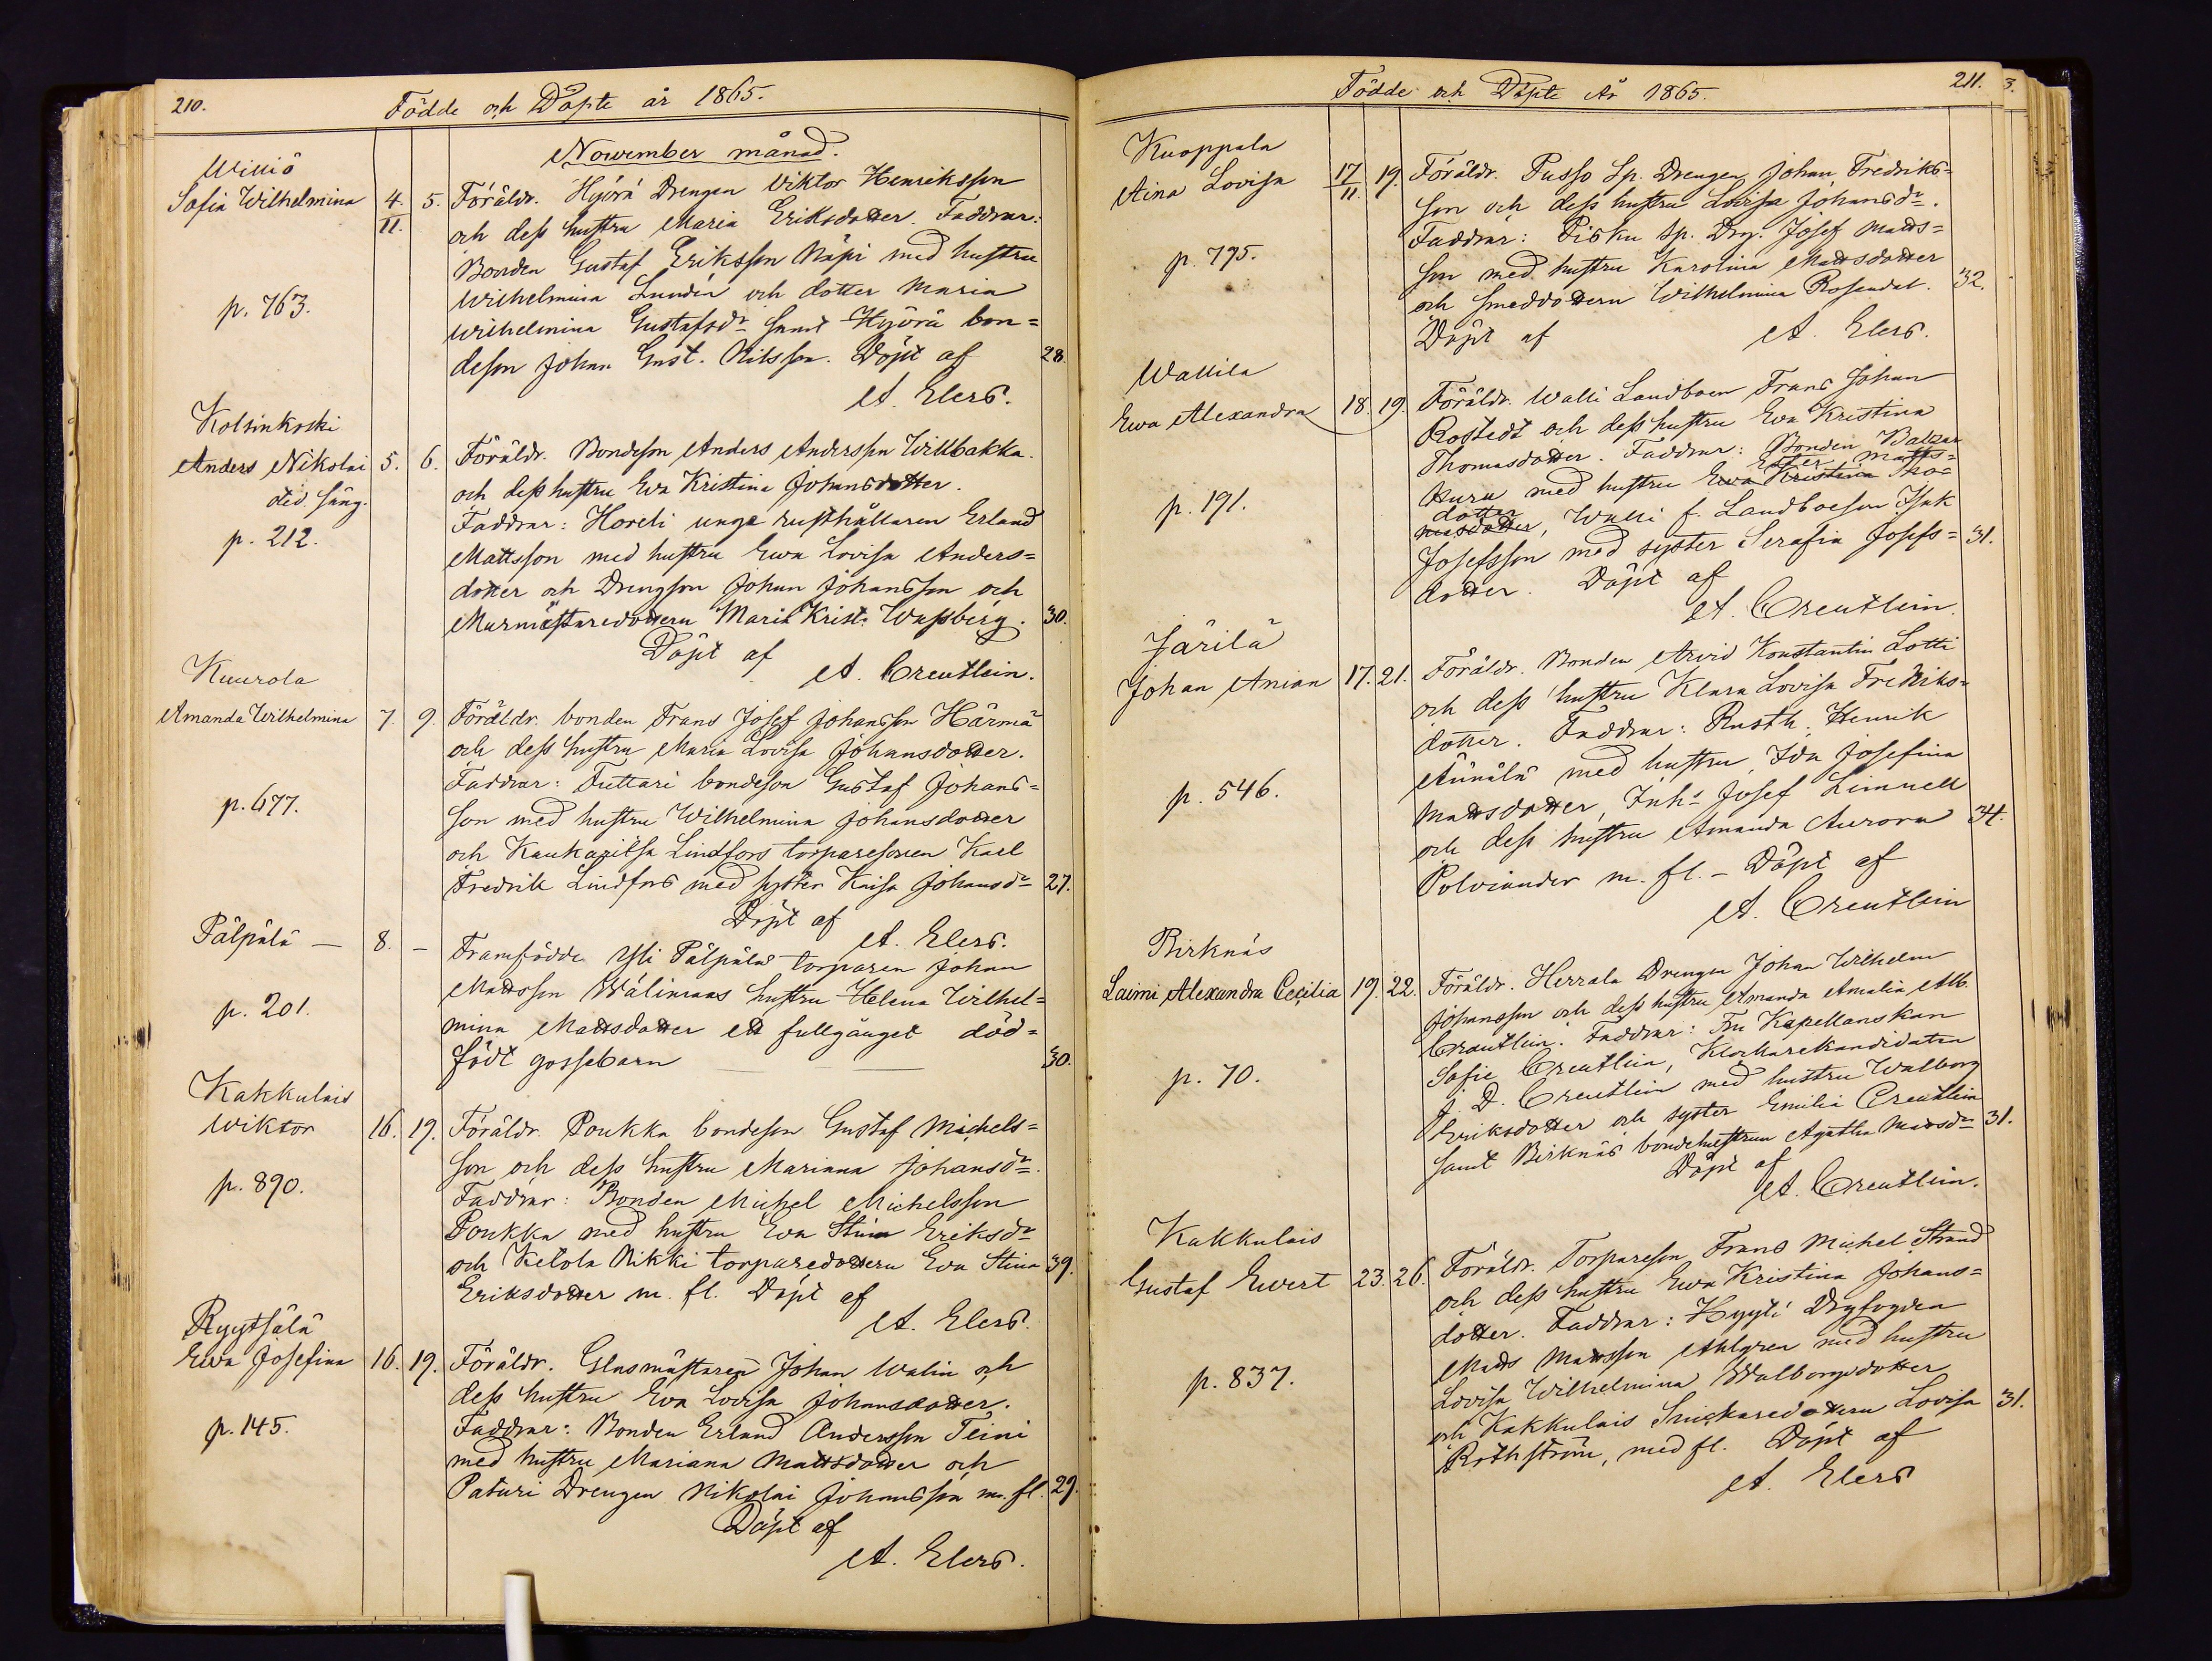 210.
Födde och Döpte år 1865.
November månad.
Williö
Sofia Wilhelmina 4. 5. Föräldr. Hyörä Drengen Viktor Henriksson
11. och dess hustru Maria Eriksdotter. Faddrar:
Bonden Gustaf Eriksson Näpi med hustru
Wilhelmina Lundén och dotter Maria
p. 763.
Wilhelmina Gustafsdr samt Hyörä bon=
deson Johan Gust. Nilsson. Döpt af 28.
A. Elers.
Kolsinkoski
Anders Nikolai 5. 6. Föräldr. Bondeson Anders Andersson Willbakka
död. säng. och dess hustru Eva Kristina Johansdotter.
p. 212. Faddrar: Horeli unge rusthållaren Erland
Mattsson med hustru Ewa Lovisa Anders=
dotter och Drengson Johan Johansson och
Murmästaredottern Maria Krist. Wassberg. 30.
Döpt af
A. Creutlein.
Kuurola
Amanda Wilhelmina 7. 9. Föräldr. bonden Frans Josef Johansson Härmä
och dess hustru Maria Lovisa Johansdotter.
Faddrar: Tuttari bondeson Gustaf Johans=
p. 677. son med hustru Wilhelmina Johansdotter
och Kaukaritsa Lindfors torparesonen Karl
Fredrik Lindfors med syster Kaisa Johansdr 27.
Döpt af
A. Elers.
Pälpälä — 8. – Framfödde Yli Pälpälä torparen Johan
Mattsson Wälimaas hustru Helena Wilhel=
p. 201. mina Mattsdotter ett fullgånget död=
född gossebarn 30.
Kakkulais
Wiktor 16. 19. Föräldr. Poukka bondeson Gustaf Michels=
son och dess hustru Marianna Johansdr.
p. 890. Faddrar: Bonden Michel Michelsson
Poukka med hustru Eva Stina Eriksdr
och Ketola Nikki torparedottern Eva Stina 39.
Eriksdotter m. fl. Döpt af
A. Elers.
Ryytsälä
Ewa Josefina 16. 19. Föräldr. Glasmästaren Johan Walin och
dess hustru Eva Lovisa Johansdotter.
p. 145. Faddrar: Bonden Erland Andersson Teini
med hustru Mariana Mattsdotter och
Paturi Drengen Nikolai Johansson m. fl. 29.
Döpt af
A. Elers.
Födde och Döpte År 1865.
211.
3.
Knoppala
Aina Lovisa 17 19. Föräldr. Pusso Sp. Drengen Johan Fredriks=
11. son och dess hustru Lovisa Johansdr.
p. 795. Faddrar: Pisku Sp. Drg. Josef Matts=
son med hustru Karolina Mattsdotter
och smeddottern Wilhelmina Rosendal. 32.
Döpt af A. Elers.
Wallila
Ewa Alexandra 18. 19. Föräldr. Walli Landboen Frans Johan
Rostedt och dess hustru Eva Kristina
Thomasdotter. Faddrar: Bonden Balzar
Ester Matts=
p. 191. med hustru Ewa Kristina Tho=
dotter
masdotter, Walli f. Landboeson Isak
Josefsson med syster Serafia Josefs= 31.
dotter. Döpt af
A. Creutlein.
Järilä
Johan Anian 17. 21. Föräldr. Bonden Arvid Konstantin Lotti
och dess hustru Klara Lovisa Fredriks=
dotter. Faddrar: Rusth. Henrik
p. 546. Äünälä med hustru Ida Josefina
Mattsdotter, Inhs Josef Limnell
och dess hustru Amanda Aurora 34.
Polviander m. fl. – Döpt af
A. Creutlein
Birknäs
Laimi Alexandra Cecilia 19. 22. Föräldr. Herrala Drengen Johan Wilhelm
Johansson och dess hustru Amanda Amalia Alb.
Creutlein. Faddrar: Fru Kapellanskan
p. 70. Sofie Creutlein, Klockarekandidaten
J. D. Creutlein med hustru Walborg
Eriksdotter och syster Emilia Creutlein
samt Birknäs bondehustrun Agatha Mattsdr 31.
Döpt af
A. Creutlein.
Kakkulais
Gustaf Evert 23. 26. Föräldr. Torpareson Frans Michel Strand
och dess hustru Ewa Kristina Johans=
dotter. Faddrar: Hyyti Drgfogden
p. 837. Matts Mattsson Ahlgren med hustru
Lovisa Wilhelmina Walborgsdotter
och Kakkulais Snickaredottern Lovisa 31.
Rothström, med fl. Döpt af
A. Elers